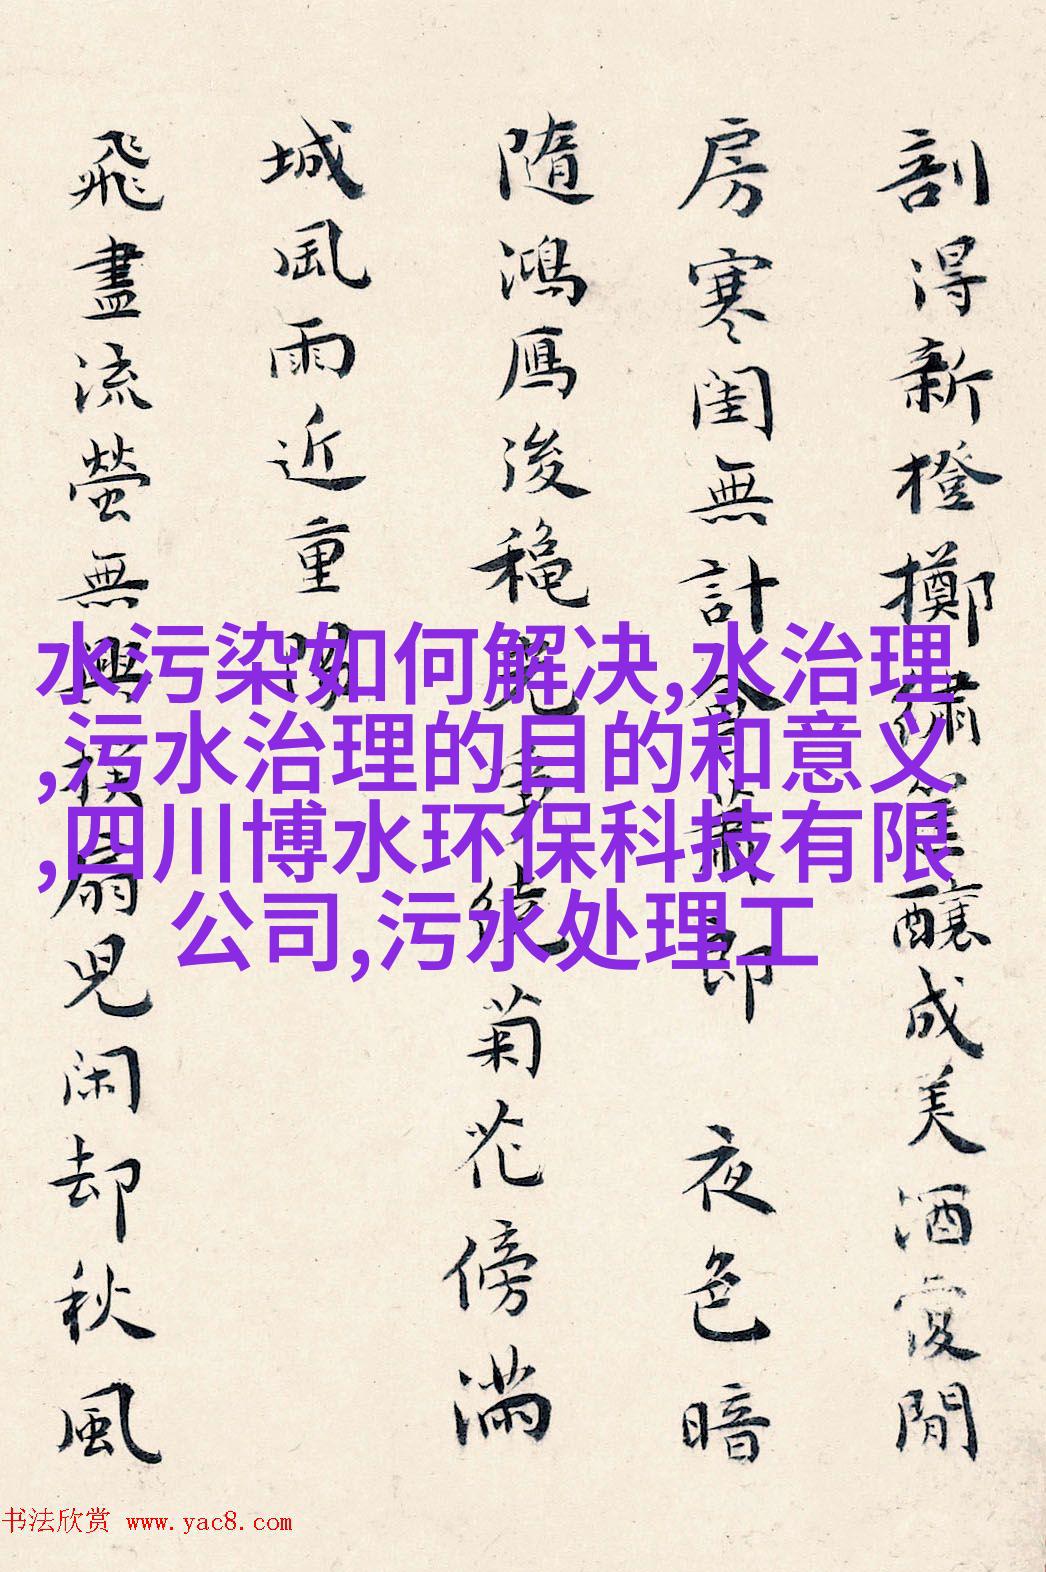 剖得新橙擲繡釀成美酒閒
房寒閨無計會蕭郎 夜色暗
隨鴻鴈後穐繞菊花傍滿
城風雨近重陽
飛盡流螢無興撲扇兒闲却秋風
水污染如何解决,水治理
,污水治理的目的和意义
,四川博水环保科技有限
公司,污水处理工
书法欣赏 www.yac8.com